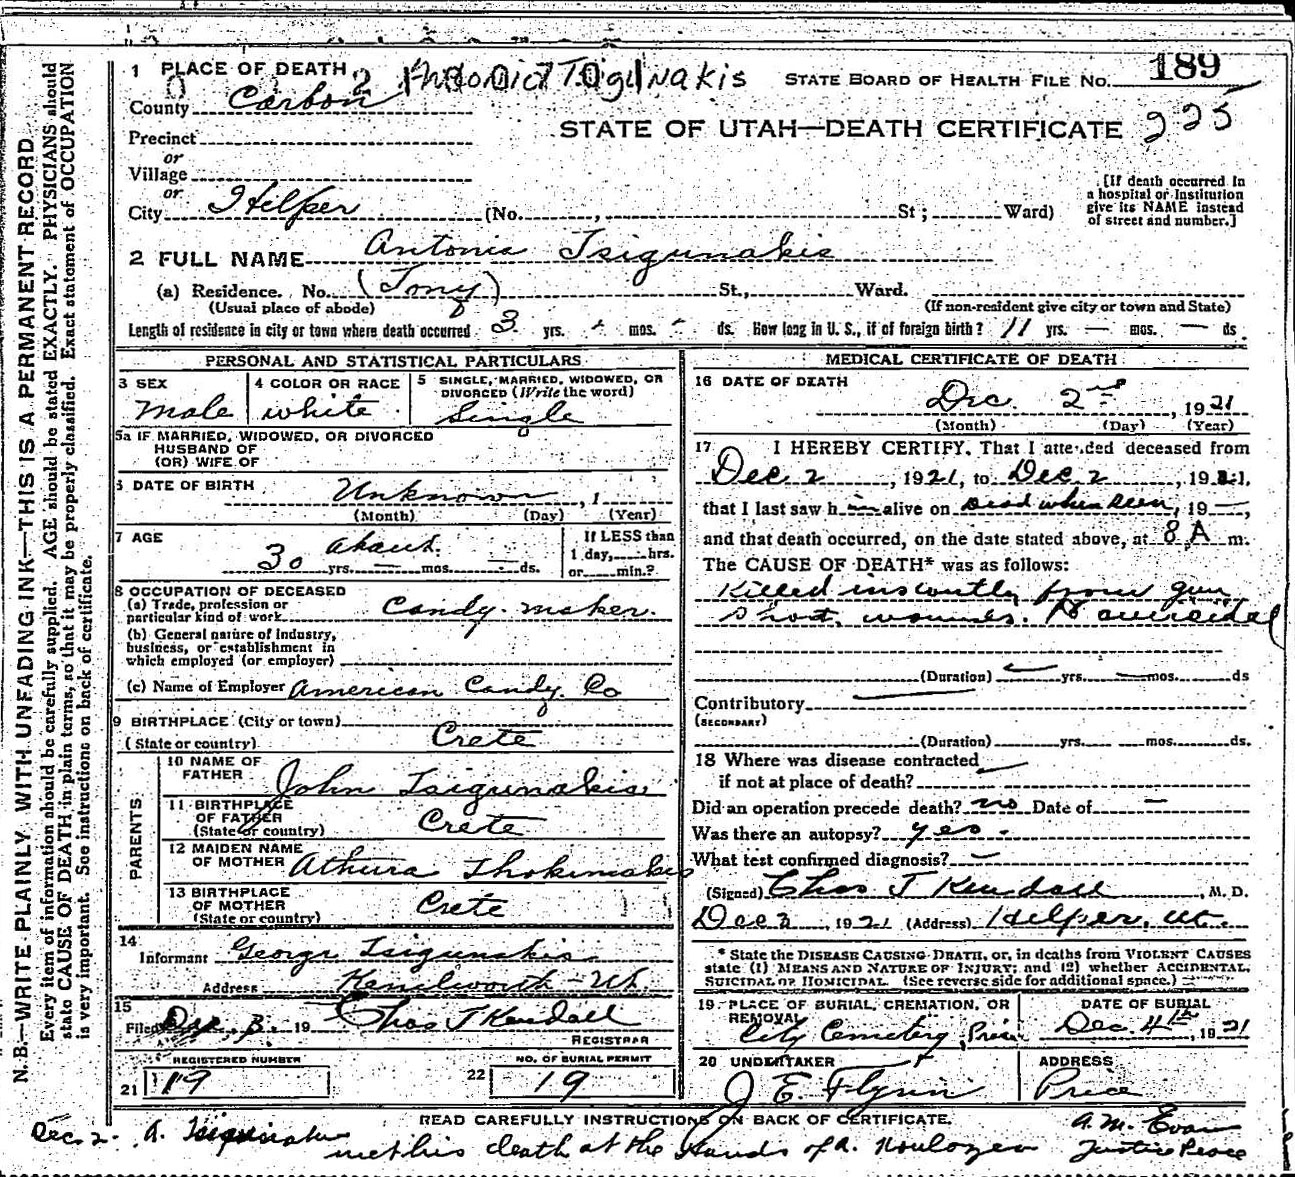 1 PLACE OF DEATH
STATE BOARD OF HEALTH FILE No. 189
County Carbon
STATE OF UTAH—DEATH CERTIFICATE 225
Precinct
or
Village
or
City Helper (No. , St ; Ward)
[If death occurred in a hospital or Institution give its NAME instead of street and number.]
2 FULL NAME Antonio Tsigunakis
(a) Residence. No. (Tony) St., Ward.
(Usual place of abode) (If non-resident give city or town and State)
Length of residence in city or town where death occurred 3 yrs. mos. ds. How long in U. S., if of foreign birth? 11 yrs. — mos. — ds
PERSONAL AND STATISTICAL PARTICULARS
3 SEX male
4 COLOR OR RACE white
5 SINGLE, MARRIED, WIDOWED, OR DIVORCED (Write the word) Single
5a IF MARRIED, WIDOWED, OR DIVORCED
HUSBAND OF
(OR) WIFE OF
6 DATE OF BIRTH Unknown , 1
(Month) (Day) (Year)
7 AGE about
30 yrs. — mos. — ds.
If LESS than
1 day, hrs.
or min.?
8 OCCUPATION OF DECEASED
(a) Trade, profession or particular kind of work Candy maker.
(b) General nature of Industry, business, or establishment in which employed (or employer)
(c) Name of Employer American Candy Co
9 BIRTHPLACE (City or town)
(State or country) Crete
PARENTS
10 NAME OF FATHER John Tsigunakis
11 BIRTHPLACE OF FATHER (State or country) Crete
12 MAIDEN NAME OF MOTHER
13 BIRTHPLACE OF MOTHER (State or country) Crete
14
Informant George Tsigunakis
Address Kenilworth - Ut.
15
Filed Dec. 3. 19 Chas T Kendall
REGISTRAR
REGISTERED NUMBER
21 119
NO. OF BURIAL PERMIT
22 19
MEDICAL CERTIFICATE OF DEATH
16 DATE OF DEATH
Dec. 2nd , 1921
(Month) (Day) (Year)
17 I HEREBY CERTIFY. That I attended deceased from
Dec 2 , 1921, to Dec. 2 , 1921.
that I last saw him alive on Dead when seen, 19 —,
and that death occurred, on the date stated above, at 8 A m.
The CAUSE OF DEATH* was as follows:
Killed instantly from gun
shot wounds. Homicidal
(Duration) yrs. mos. ds
Contributory
(SECONDARY)
(Duration) yrs. mos. ds.
18 Where was disease contracted
if not at place of death?
Did an operation precede death? no Date of —
Was there an autopsy? yes.
What test confirmed diagnosis?
(Signed) Chas T Kendall , M. D.
Dec 2 , 1921 (Address) Helper, Ut.
* State the DISEASE CAUSING DEATH, or, in deaths from VIOLENT CAUSES
state (1) MEANS AND NATURE OF INJURY; and (2) whether ACCIDENTAL,
SUICIDAL OR HOMICIDAL. (See reverse side for additional space.)
19 PLACE OF BURIAL, CREMATION, OR REMOVAL
City Cemetery, Price
DATE OF BURIAL
Dec. 4th , 1921
20 UNDERTAKER
J E. Flynn
ADDRESS
Price
READ CAREFULLY INSTRUCTIONS ON BACK OF CERTIFICATE.
Dec. 2. A. Tsigunakis
met his death at the hands of A.
A. M. Evans
Justice Peace
N. B.—WRITE PLAINLY, WITH UNFADING INK—THIS IS A PERMANENT RECORD.
Every item of information should be carefully supplied. AGE should be stated EXACTLY. PHYSICIANS should
state CAUSE OF DEATH in plain terms, so that it may be properly classified. Exact statement of OCCUPATION
is very important. See instructions on back of certificate.